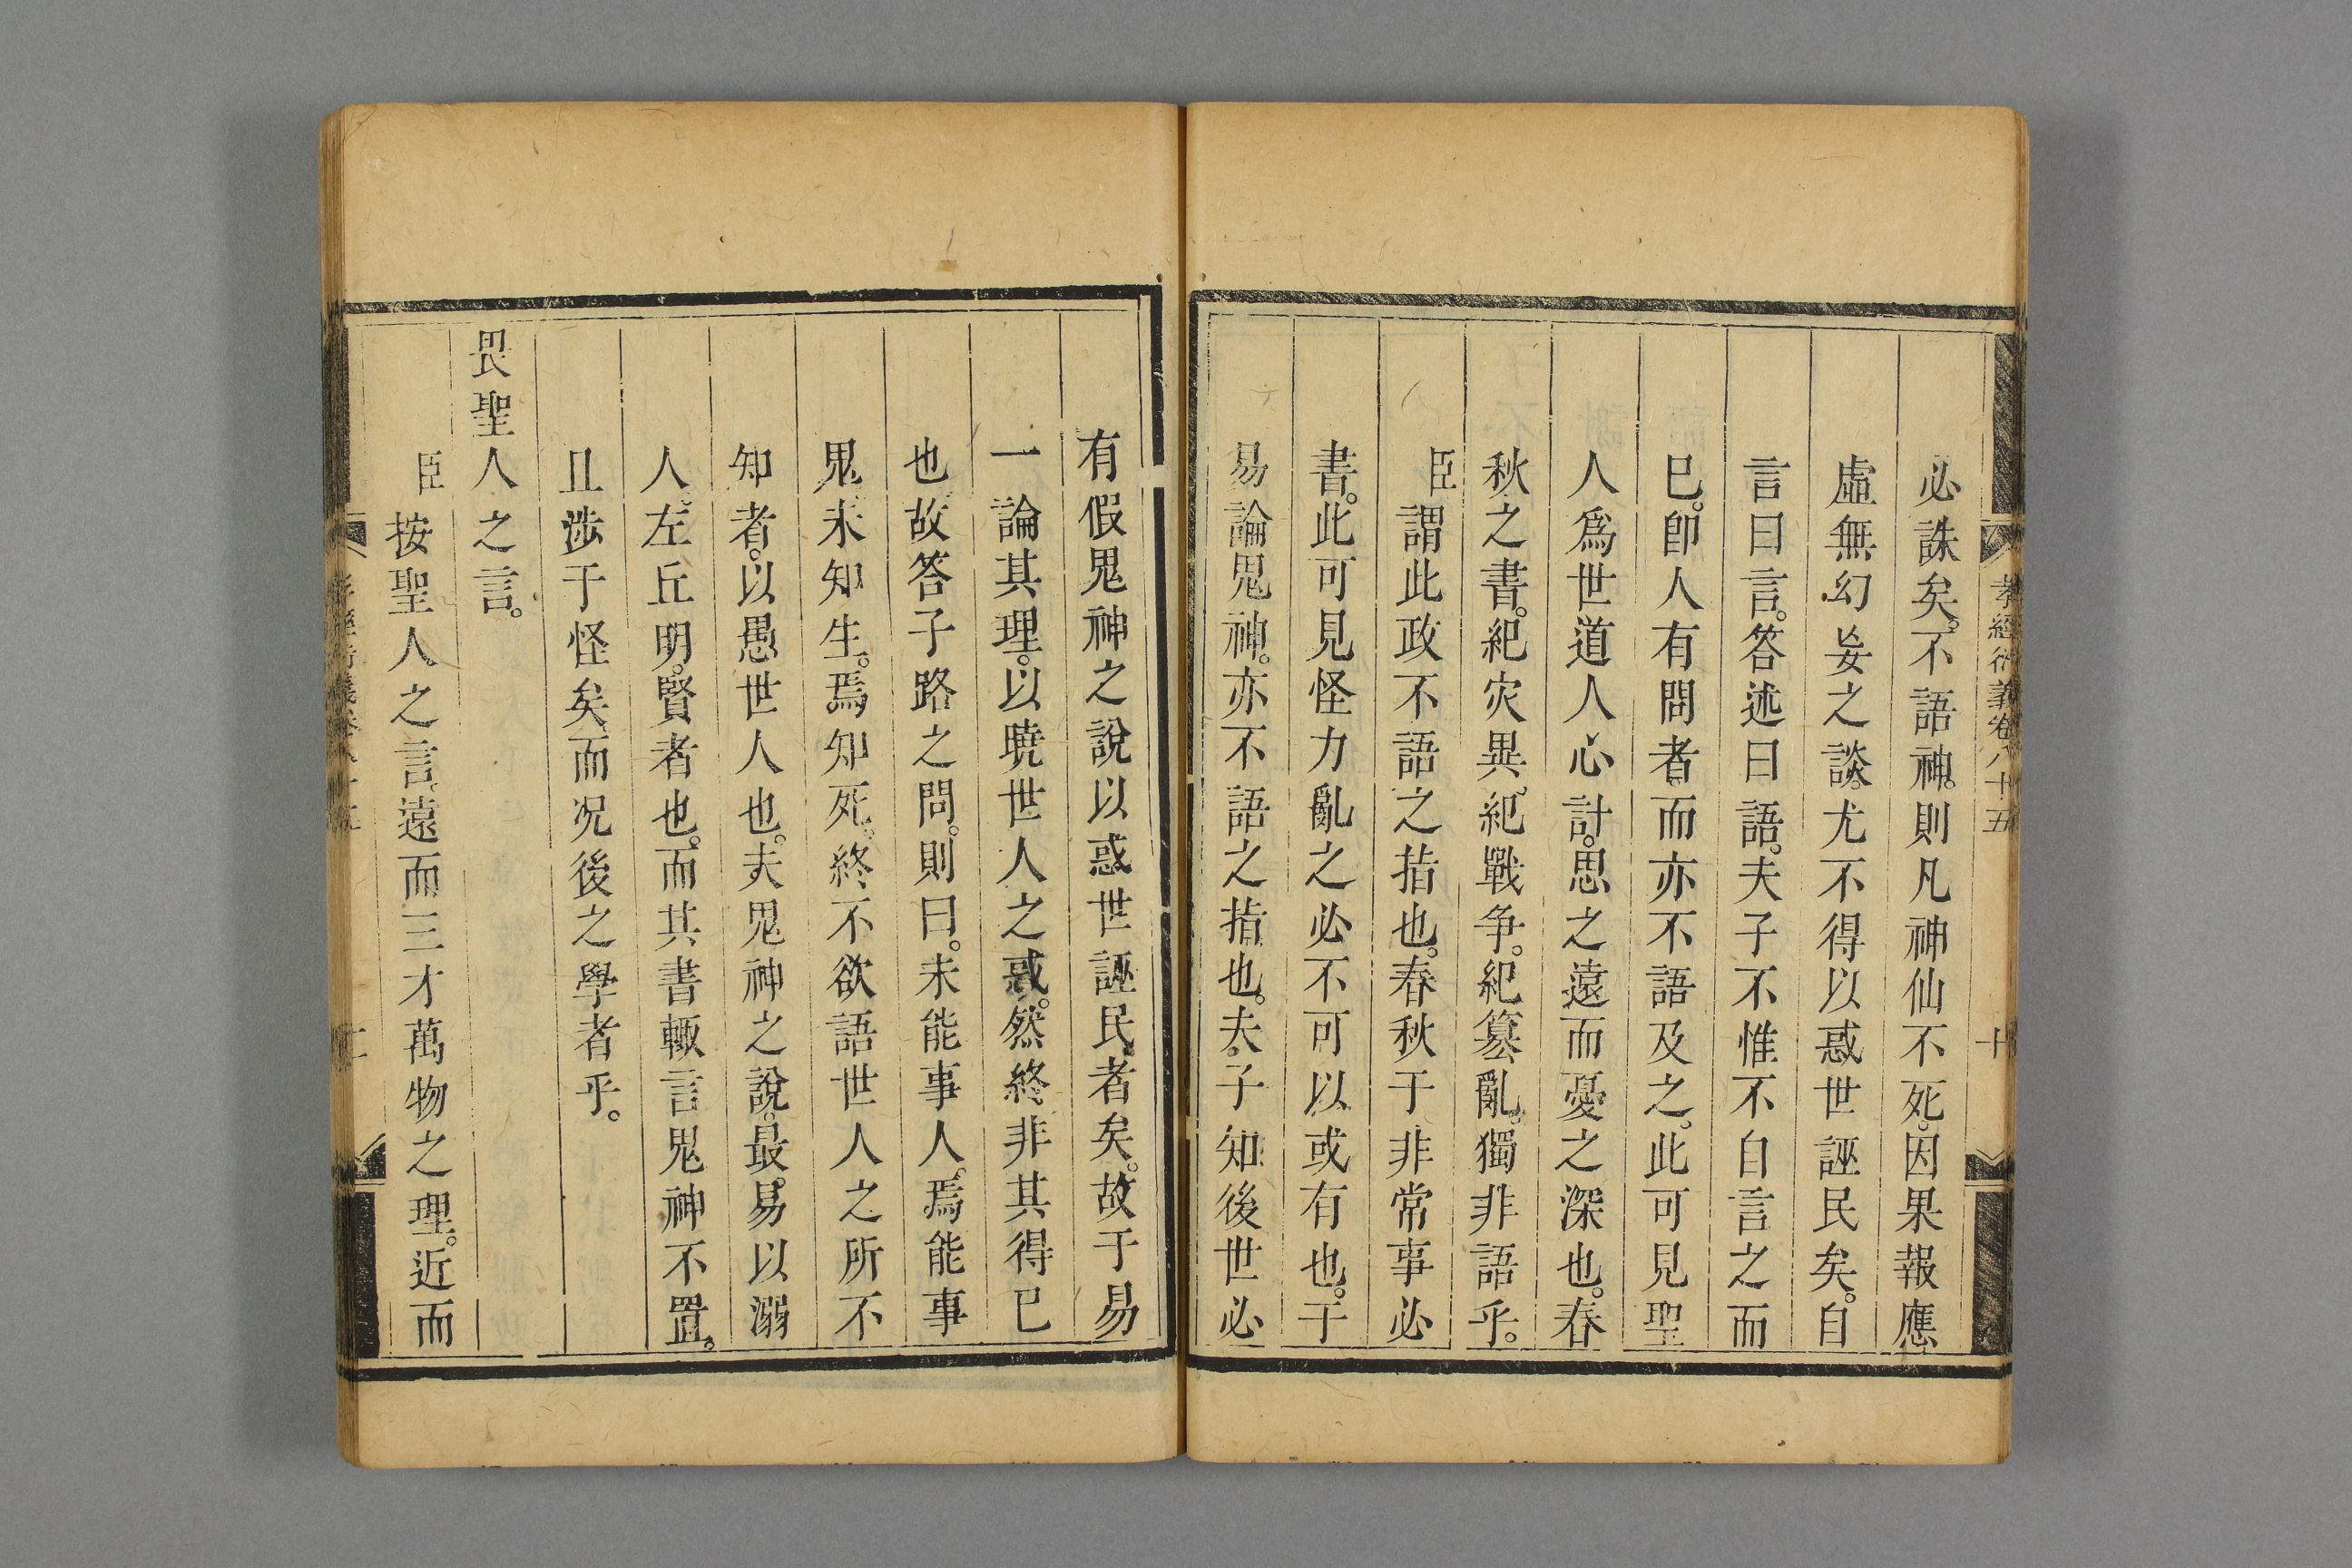 孝經衍義卷八十五 十
必誅矣。不語神。則凡神仙不死。因果報應
虛無幻妄之談。尤不得以惑世誣民矣。自
言曰言。答述曰語。夫子不惟不自言之而
已。卽人有問者。而亦不語及之。此可見聖
人爲世道人心計。思之遠而憂之深也。春
秋之書。紀灾異。紀戰争。紀簒亂。獨非語乎。
臣謂此政不語之指也。春秋于非常事必
書。此可見怪力亂之必不可以或有也。于
易論鬼神。亦不語之指也。夫子知後世必
有假鬼神之說以惑世誣民者矣。故于易
一論其理。以曉世人之惑。然終非其得已
也。故答子路之問。則曰。未能事人。焉能事
鬼。未知生。焉知死。終不欲語世人之所不
知者。以愚世人也。夫鬼神之說。最易以溺
人。左丘明。賢者也。而其書輙言鬼神不置。
且涉于怪矣。而况後之學者乎。
畏聖人之言。
臣按聖人之言。遠而三才萬物之理。近而